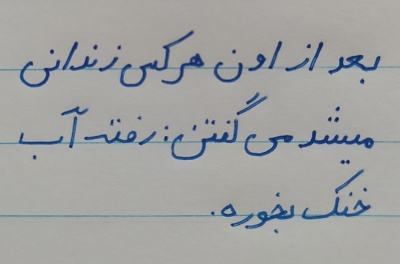 بعد از اون هرکس زندانی
میشد می گفتن: رفته آب
خنک بخوره.